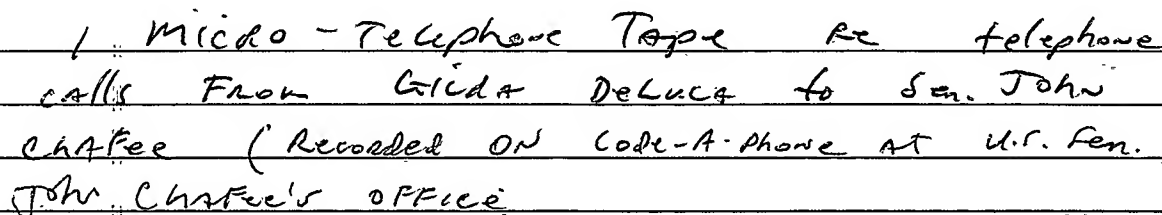 1 Micro-Telephone Tape Re telephone
calls From Gilda DeLuca to Sen. John
Chafee (Recorded on Code-A-Phone at U.S. Sen.
John Chafee's office